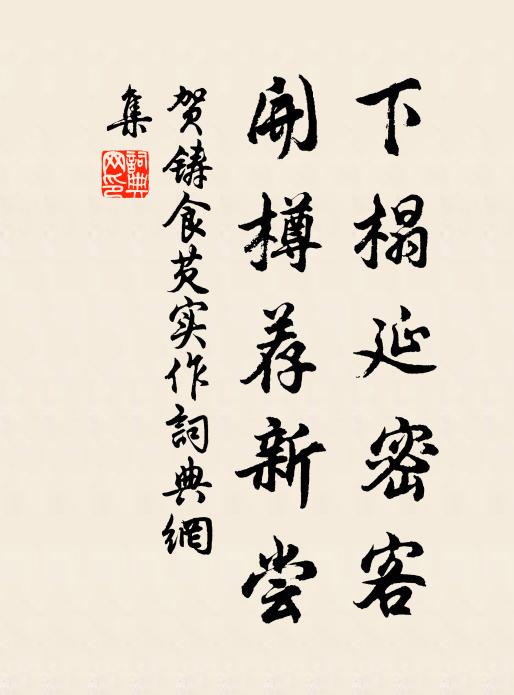 下榻延密客
開樽荐新尝
贺铸食芡实作詞典網
集
詞典
網